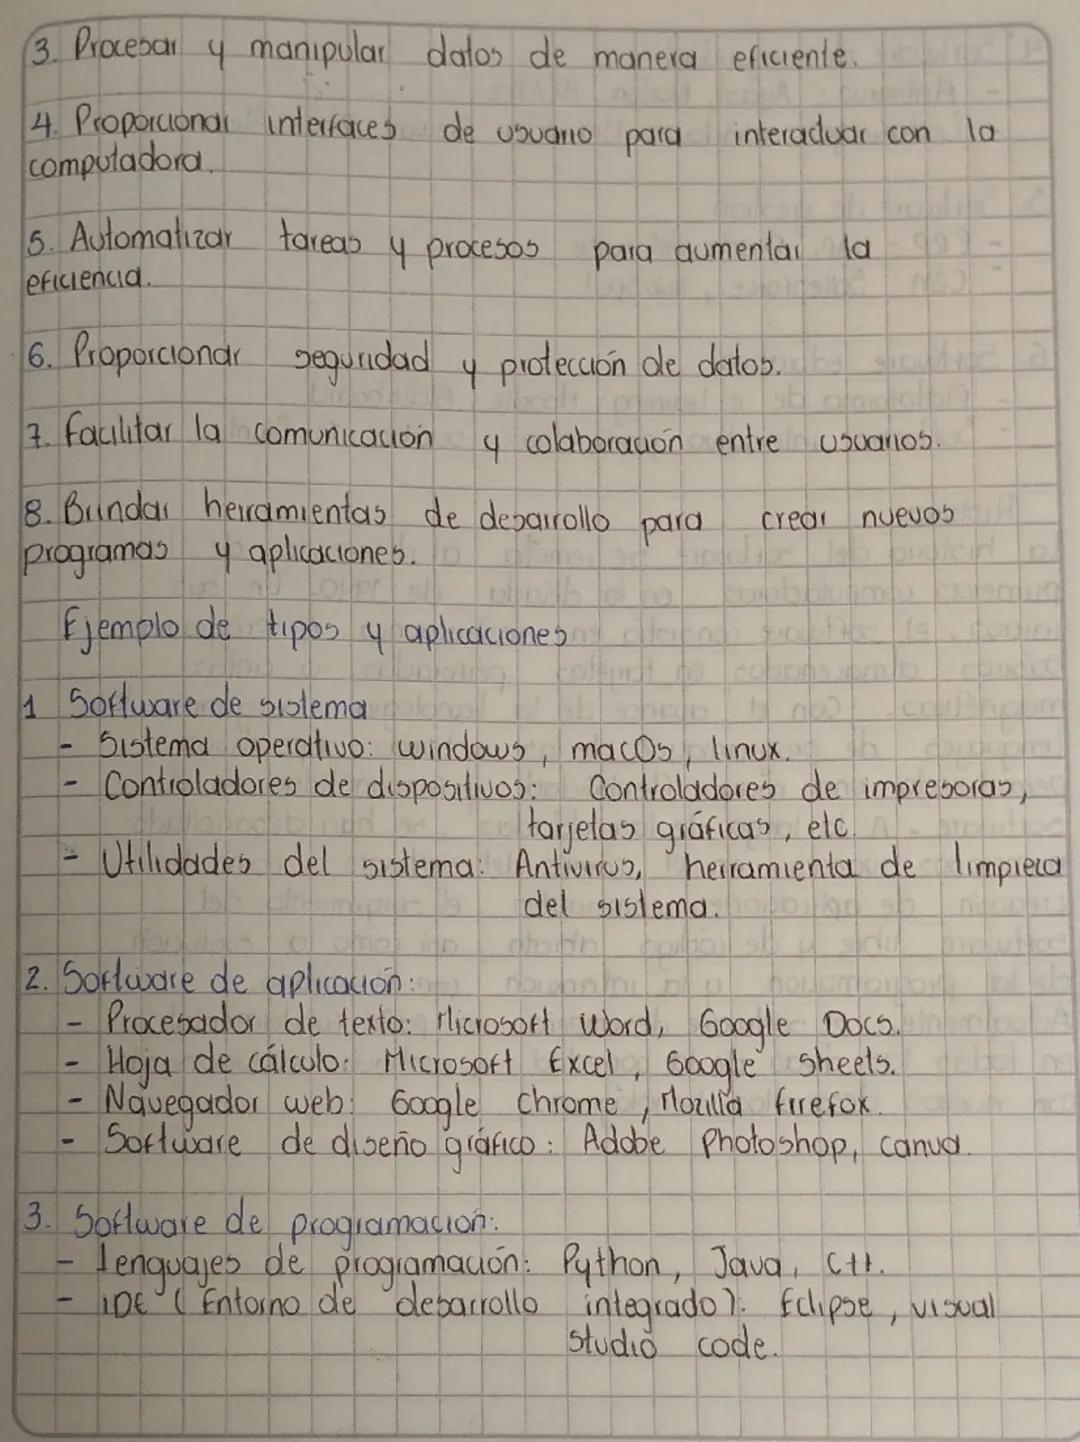 3. Procesar y manipular datos de manera eficiente.
4. Proporcionar interfaces de usuario para interactuar con la
computadora.
5. Automatizar tareas y procesos para aumentar la
eficiencia.
6. Proporcionar seguridad y protección de datos.
7. Facilitar la comunicación y colaboración entre usuarios.
8. Brindar herramientas de desarrollo para crear nuevos
programas y aplicaciones.
Ejemplo de tipos y aplicaciones
1 Software de sistema
- Sistema operativo: windows, macOs, linux.
- Controladores de dispositivos: Controladores de impresoras,
tarjetas gráficas, etc.
- Utilidades del sistema: Antivirus, herramienta de limpieza
del sistema.
2. Software de aplicación:
- Procesador de texto: Microsoft Word, Google Docs.
- Hoja de cálculo: Microsoft Excel, Google Sheets.
- Navegador web: Google Chrome, Mozilla firefox.
- Software de diseño gráfico: Adobe Photoshop, canva.
3. Software de programación:
- lenguajes de programación: Python, Java, C++.
- IDE (Entorno de desarrollo integrado): Eclipse, visual
studio code.